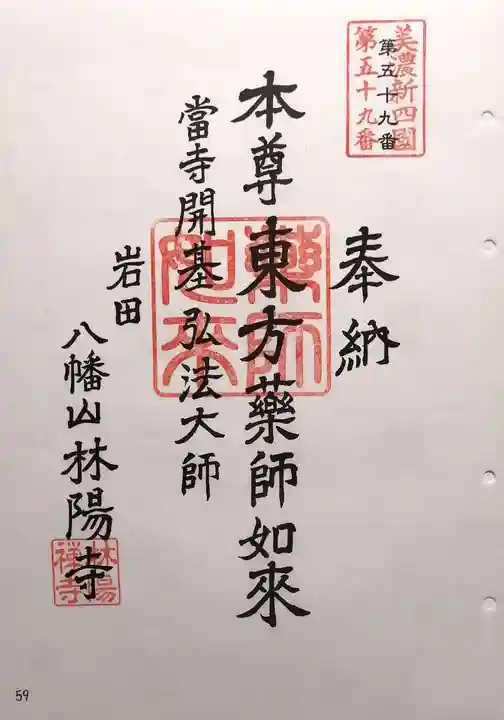 美濃新四國
第五十九番
第五十九番
奉納
本尊東方藥師如來
藥師
如来
當寺開基弘法大師
岩田
八幡山林陽寺
林陽
禅寺
59